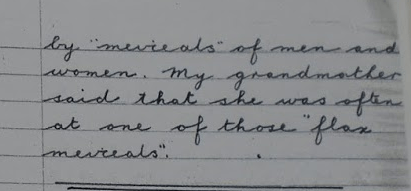 by "mevieals" of men and
women. My grandmother
said that she was often
at one of those "flax
mevieals".